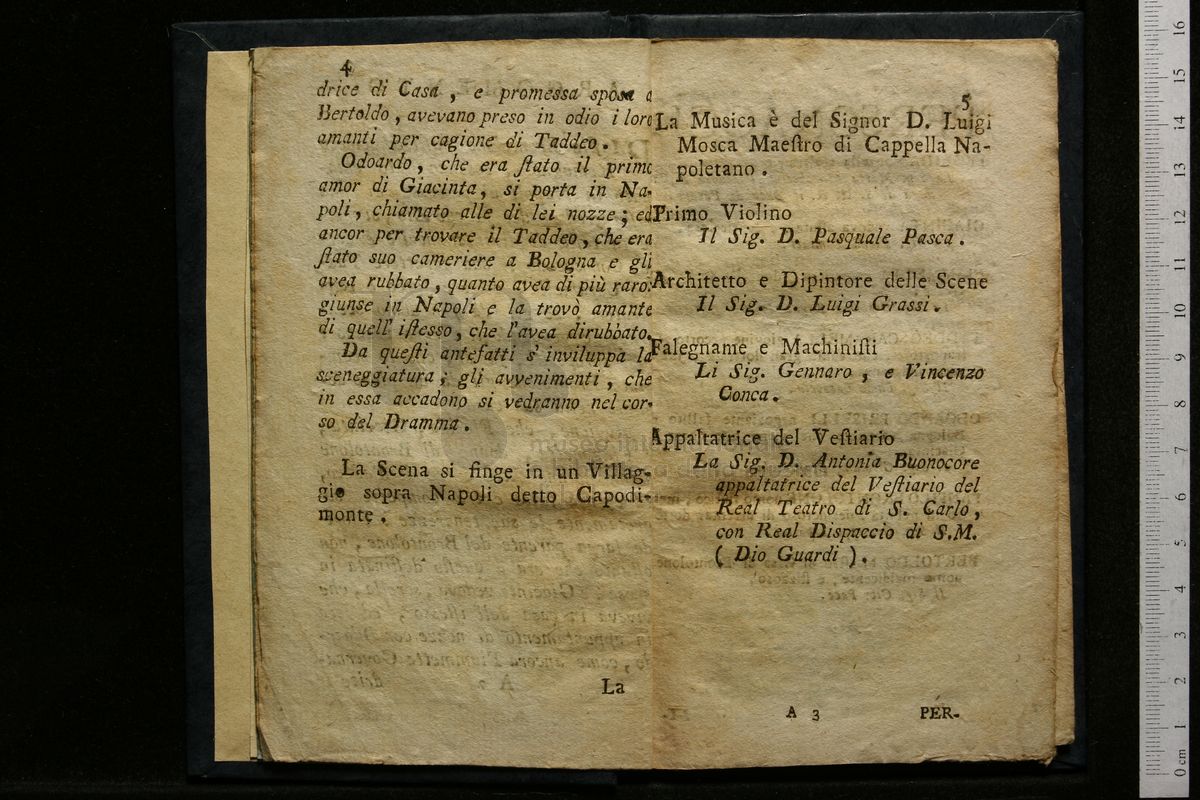 4
drice di Casa, e promessa sposa a
Bertoldo, avevano preso in odio i loro
amanti per cagione di Taddeo.
Odoardo, che era ſtato il primo
amor di Giacinta, si porta in Na-
poli, chiamato alle di lei nozze; ed
ancor per trovare il Taddeo, che era
ſtato suo cameriere a Bologna e gli
avea rubbato, quanto avea di più raro:
giunse in Napoli e la trovò amante
di quell' iſtesso, che l'avea dirubbato.
Da queſti antefatti s' inviluppa la
sceneggiatura; gli avvenimenti, che
in essa accadono si vedranno nel cor-
so del Dramma.
La Scena si finge in un Villag-
gio sopra Napoli detto Capodi-
monte.
La
5
La Musica è del Signor D. Luigi
Mosca Maeſtro di Cappella Na-
poletano.
Primo Violino
Il Sig. D. Pasquale Pasca.
Architetto e Dipintore delle Scene
Il Sig. D. Luigi Grassi.
Falegname e Machiniſti
Li Sig. Gennaro, e Vincenzo
Conca.
Appaltatrice del Veſtiario
La Sig. D. Antonia Buonocore
appaltatrice del Veſtiario del
Real Teatro di S. Carlo,
con Real Dispaccio di S.M.
( Dio Guardi ).
A 3
PER-
0 cm 1 2 3 4 5 6 7 8 9 10 11 12 13 14 15 16